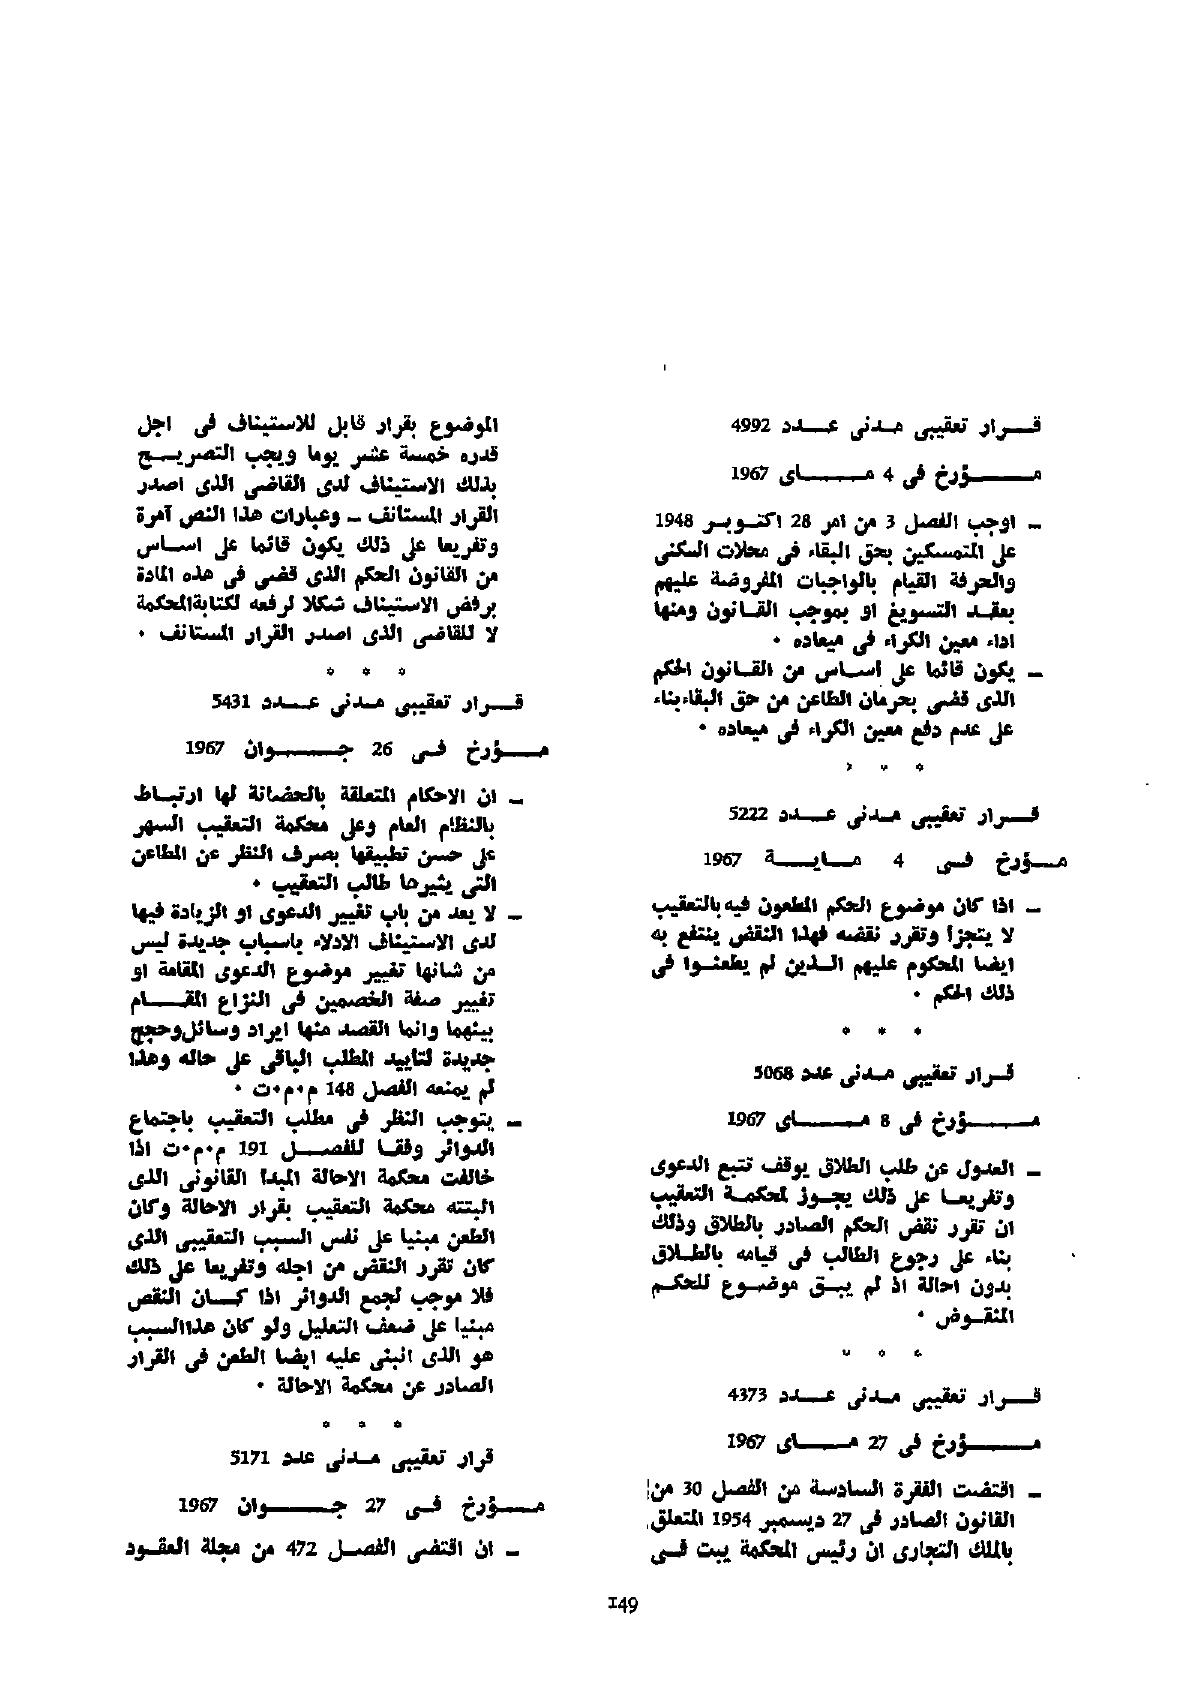 قـــرار تعقيبى مـدنى عـــدد 4992
مـــــؤرخ فى 4 مـــــاى 1967
ـ اوجب الفصل 3 من امر 28 اكتـوبـر 1948
على المتمسكين بحق البقاء فى محلات السكنى
والحرفة القيام بالواجبات المفروضة عليهم
بعقـد التسويغ او بموجب القـانون ومنها
اداء معين الكراء فى ميعاده •
ـ يكون قائما على أسـاس من القـانون الحكم
الذى قضى بحرمان الطاعن من حق البقاء بناء
على عدم دفع معين الكراء فى ميعاده •
* * *
قـــرار تعقيبى مـدنى عـــدد 5222
مــؤرخ فـى 4 مـايــة 1967
ـ اذا كان موضوع الحكم المطعون فيه بالتعقيب
لا يتجزأ وتقرر نقضه فهذا النقض ينتفع به
ايضا المحكوم عليهم الـذين لم يطعنـوا فى
ذلك الحكم •
* * *
قــرار تعقيبى مـدنى عدد 5068
مـــــؤرخ فى 8 مـــــاى 1967
ـ العدول عن طلب الطلاق يوقف تتبع الدعوى
وتفريعـا على ذلك يجـوز لمحكمـة التعقيب
ان تقرر نقض الحكم الصادر بالطلاق وذلك
بناء على رجوع الطالب فى قيامه بالطـلاق
بدون احالة اذ لم يبـق موضـوع للحكـم
المنقـوض •
* * *
قـــرار تعقيبى مـدنى عـــدد 4373
مـــــؤرخ فى 27 مـــاى 1967
ـ اقتضت الفقرة السادسة من الفصل 30 من
القانون الصادر فى 27 ديسمبر 1954 المتعلق
بالملك التجارى ان رئيس المحكمة يبت فـى
الموضوع بقرار قابل للاستيناف فى اجل
قدره خمسة عشر يوما ويجب التصريـح
بذلك الاستيناف لدى القاضى الذى اصدر
القرار المستانف ـ وعبارات هذا النص آمرة
وتفريعا على ذلك يكون قائما على اسـاس
من القانون الحكم الذى قضى فى هذه المادة
برفض الاستيناف شكلا لرفعه لكتابةالمحكمة
لا للقاضى الذى اصدر القرار المستانف •
* * *
قـــرار تعقيبى مـدنى عـــدد 5431
مـــؤرخ فـى 26 جـــوان 1967
ـ ان الاحكام المتعلقة بالحضانة لها ارتبـاط
بالنظام العام وعلى محكمة التعقيب السهر
على حسن تطبيقها بصرف النظر عن المطاعن
التى يثيرها طالب التعقيب •
ـ لا يعد من باب تغيير الدعوى او الزيادة فيها
لدى الاستيناف الادلاء باسباب جديدة ليس
من شانها تغيير موضوع الدعوى المقامة او
تغيير صفة الخصمين فى النزاع المقــام
بينهما وانما القصد منها ايراد وسائل وحجج
جديدة لتاييد المطلب الباقى على حاله وهذا
لم يمنعه الفصل 148 م•م•ت •
ـ يتوجب النظر فى مطلب التعقيب باجتماع
الدوائر وفقـا للفصـــل 191 م•م•ت اذا
خالفت محكمة الاحالة المبدا القانونى الذى
اثبتته محكمة التعقيب بقرار الاحالة وكان
الطعن مبنيا على نفس السبب التعقيبى الذى
كان تقرر النقض من اجله وتفريعا على ذلك
فلا موجب لجمع الدوائر اذا كــان النقض
مبنيا على ضعف التعليل ولو كان هذاالسبب
هو الذى انبنى عليه ايضا الطعن فى القرار
الصادر عن محكمة الاحالة •
* * *
قرار تعقيبى مـدنى عدد 5171
مـــؤرخ فـى 27 جـــوان 1967
ـ ان اقتضى الفصـل 472 من مجلة العقـود
149